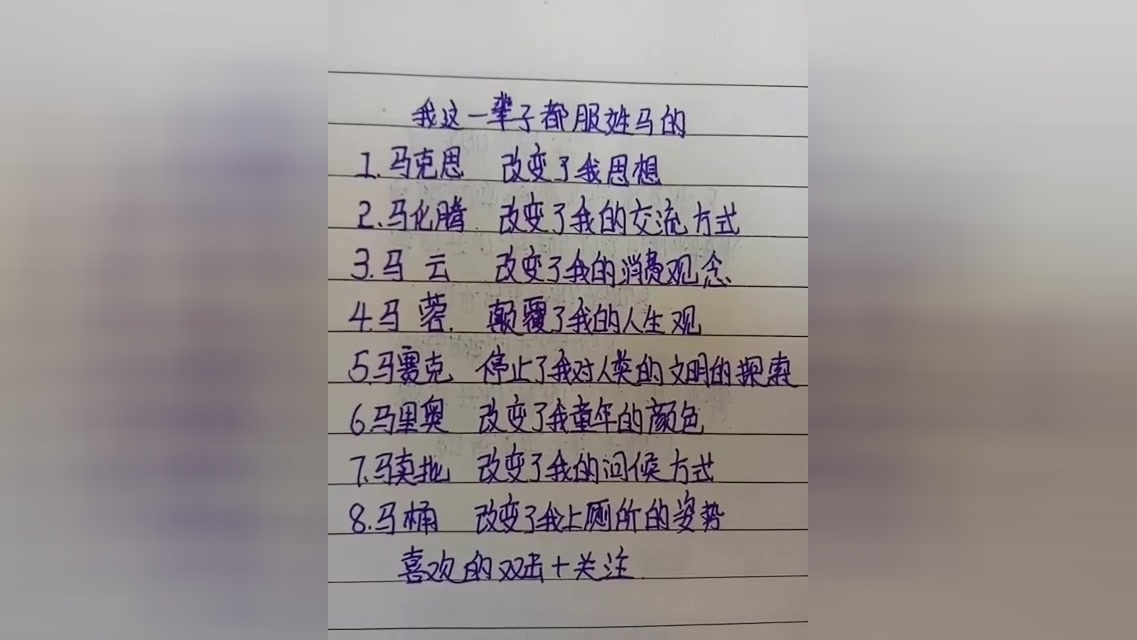 我这一辈子都服姓马的
1.马克思 改变了我思想
2.马化腾 改变了我的交流方式
3.马云 改变了我的消费观念
4.马蓉. 颠覆了我的人生观
5.马赛克 停止了我对人类的文明的探索
6.马里奥 改变了我童年的颜色
7.马卖批 改变了我的问候方式
8.马桶 改变了我上厕所的姿势
喜欢的双击+关注.